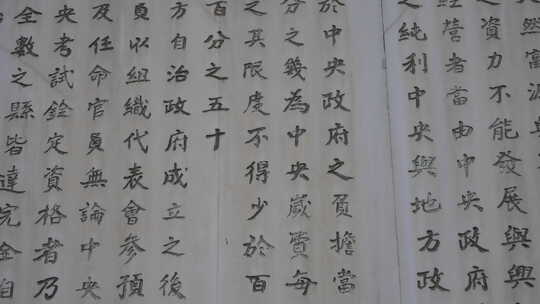 然富源與
之資力不能發展與興
經營者當由中央政府
之純利中央與地方政
於中央政府之負擔當
分之幾為中央歲費每
之其限度不得少於百
百分之五十
方自治政府成立之後
員以組織代表會參預
及任命官員無論中央
央考試銓定資格者乃
全數之縣皆達完全自